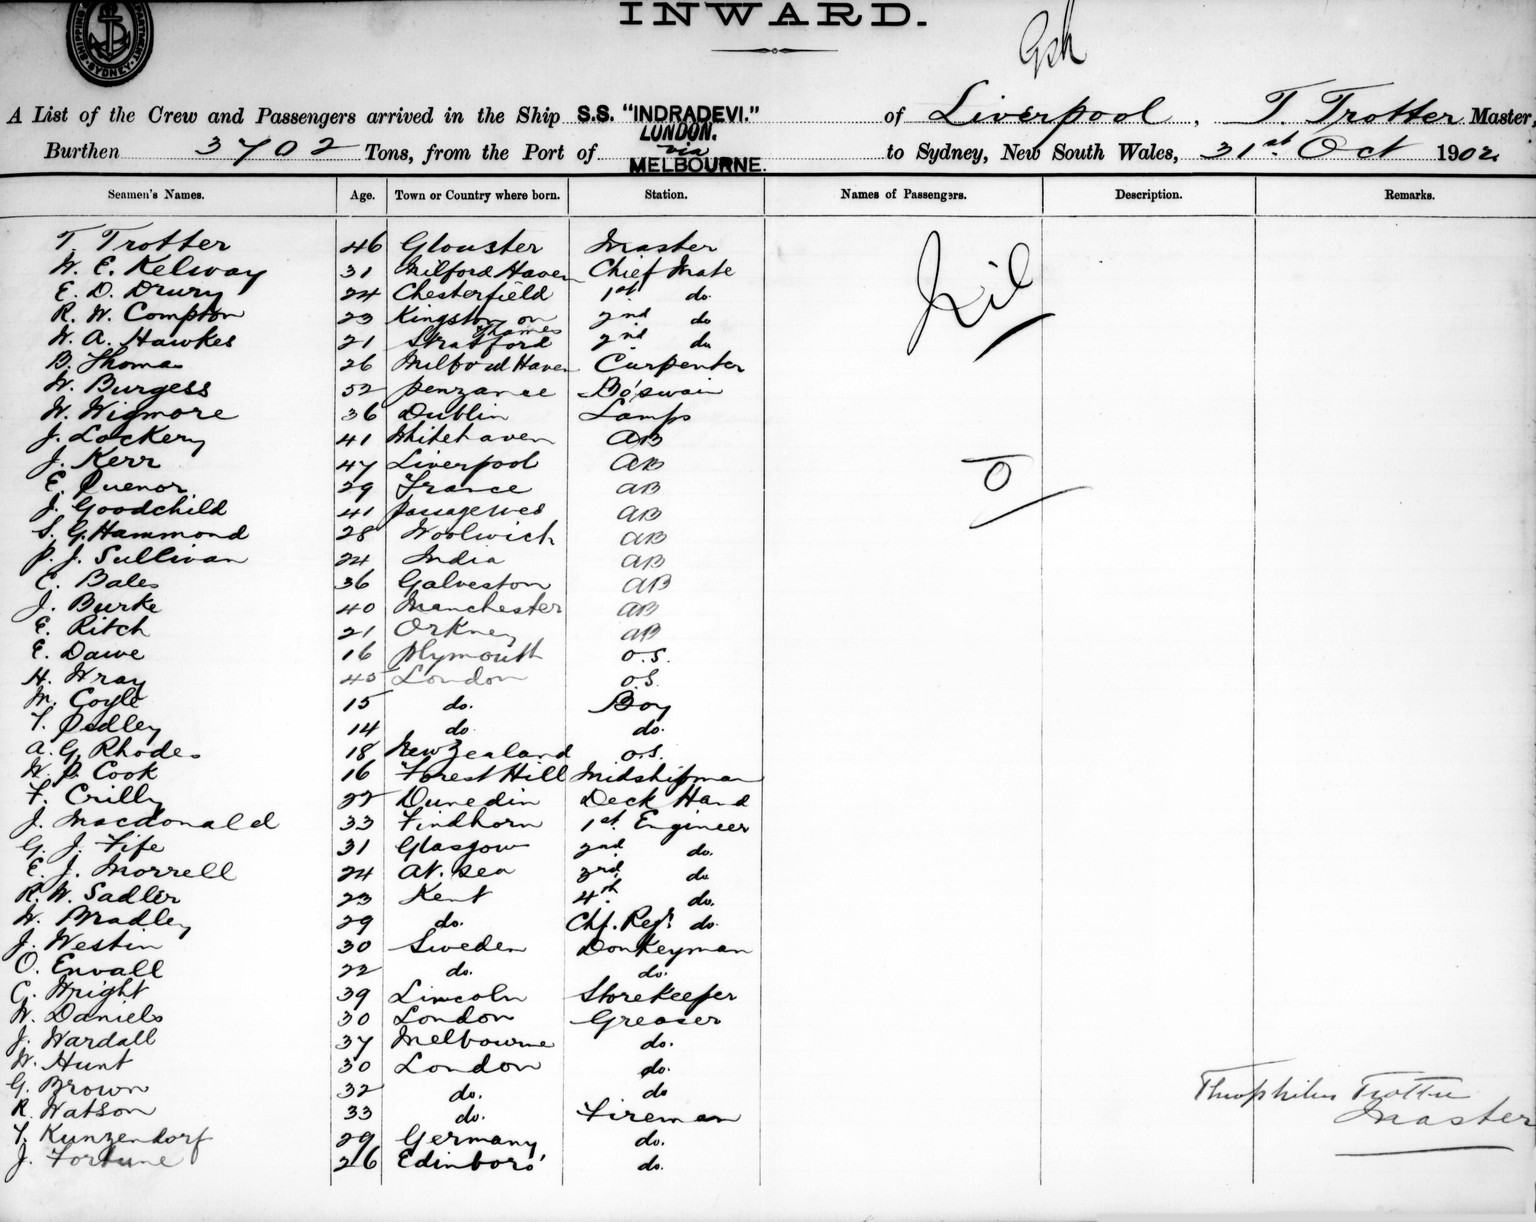 INWARD.
SHIPPING DEPARTMENT SYDNEY
A List of the Crew and Passengers arrived in the Ship S.S. "INDRADEVI." of Liverpool, T. Trotter Master,
Burthen 3702 Tons, from the Port of LONDON. via MELBOURNE. to Sydney, New South Wales, 31st Oct 1902
Seamen's Names. Age. Town or Country where born. Station. Names of Passengers. Description. Remarks.
T. Trotter 46 Glouster Master
W. E. Kelway 31 Milford Haven Chief Mate
E. D. Drury 24 Chesterfield 1st do.
R. W. Compton 23 Kingston on Thames 2nd do
W. A. Hawkes 21 Stratford 2nd do
B. Thomas 26 Milford Haven Carpenter
W. Burgess 52 Penzance Bo'swain
W. Wigmore 36 Dublin Lamps
J. Lockery 41 Whitehaven AB
J. Kerr 47 Liverpool AB
E. Quenor 29 France AB
J. Goodchild 41 Passage Wes AB
S. G. Hammond 28 Woolwich AB
P. J. Sullivan 24 India AB
C. Bales 36 Galveston AB
J. Burke 40 Manchester AB
E. Ritch 21 Orkney AB
E. Dawe 16 Plymouth O.S.
H. Wray 45 London O.S.
M. Coyle 15 do. Boy
T. Pedley 14 do do.
A. G. Rhodes 18 New Zealand O.S.
W. P. Cook 16 Forest Hill Midshipman
F. Crilly 22 Dunedin Deck Hand
J. Macdonald 33 Findhorn 1st Engineer
G. J. Fife 31 Glasgow 2nd do.
E. J. Morrell 24 At. Sea 3rd do
R. W. Sadler 23 Kent 4th do.
W. Bradley 29 do. Chf. Regr. do.
J. Westin 30 Sweden Donkeyman
O. Envall 22 do. do.
C. Wright 39 Lincoln Storekeeper
W. Daniels 30 London Greaser
J. Wardall 37 Melbourne do.
W. Hunt 30 London do.
G. Brown 32 do. do
R. Watson 33 do. Fireman
T. Kunzendorf 29 Germany do.
J. Fortune 26 Edinboro' do.
Nil
Theophilus Trotter
Master